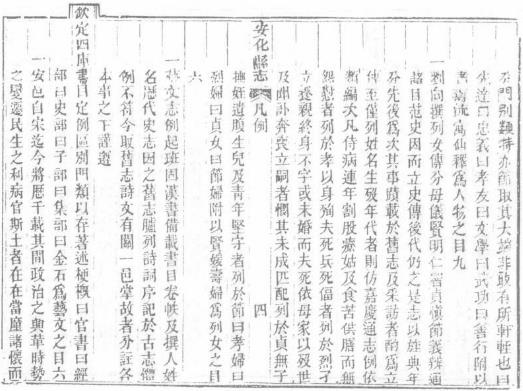 門別類特亦節取其大端非敢有所軒輊也曰
先達曰忠義曰孝友曰文學曰武功曰善行附以
耆壽流寓仙釋爲人物之目九
一劉向撰列女傳分母儀賢明仁智貞慎節義辯通
諸目范史因而立史傳後代仍之是志以姓與年
分先後爲次其事蹟載於舊志及采訪者酌爲立
傳至僅列姓名生歿年代者則仿嘉慶通志例依
類編次凡侍病連年割股療姑及食苦供膳而無
怨懟者列於孝以身殉夫死兵死者列於烈矢
立還親終身不字或未婚而夫死依母家以歿世
及聞訃奔喪立嗣者憫其未成匹配列於貞無子
安化縣志 凡例 四
撫姪遺腹生兒及青年堅守者列於節曰孝婦曰
烈婦曰貞女曰節婦附以賢媛壽婦爲列女之目
六
一藝文志例起班固漢書備載書目卷帙及撰人姓
名歷代史志因之舊志臚列詩詞序記於古志體
例不符今取舊志詩文有關一邑掌故者分註各
本事之下謹遵
欽定四庫書目定例區別門類以存著述梗概曰官書曰經
部曰史部曰子部曰集部曰金石爲藝文之目六
一安邑自宋迄今將歷千載其間政治之興革時勢
之變遷民生之利病官斯土者在在當廑諸懷而